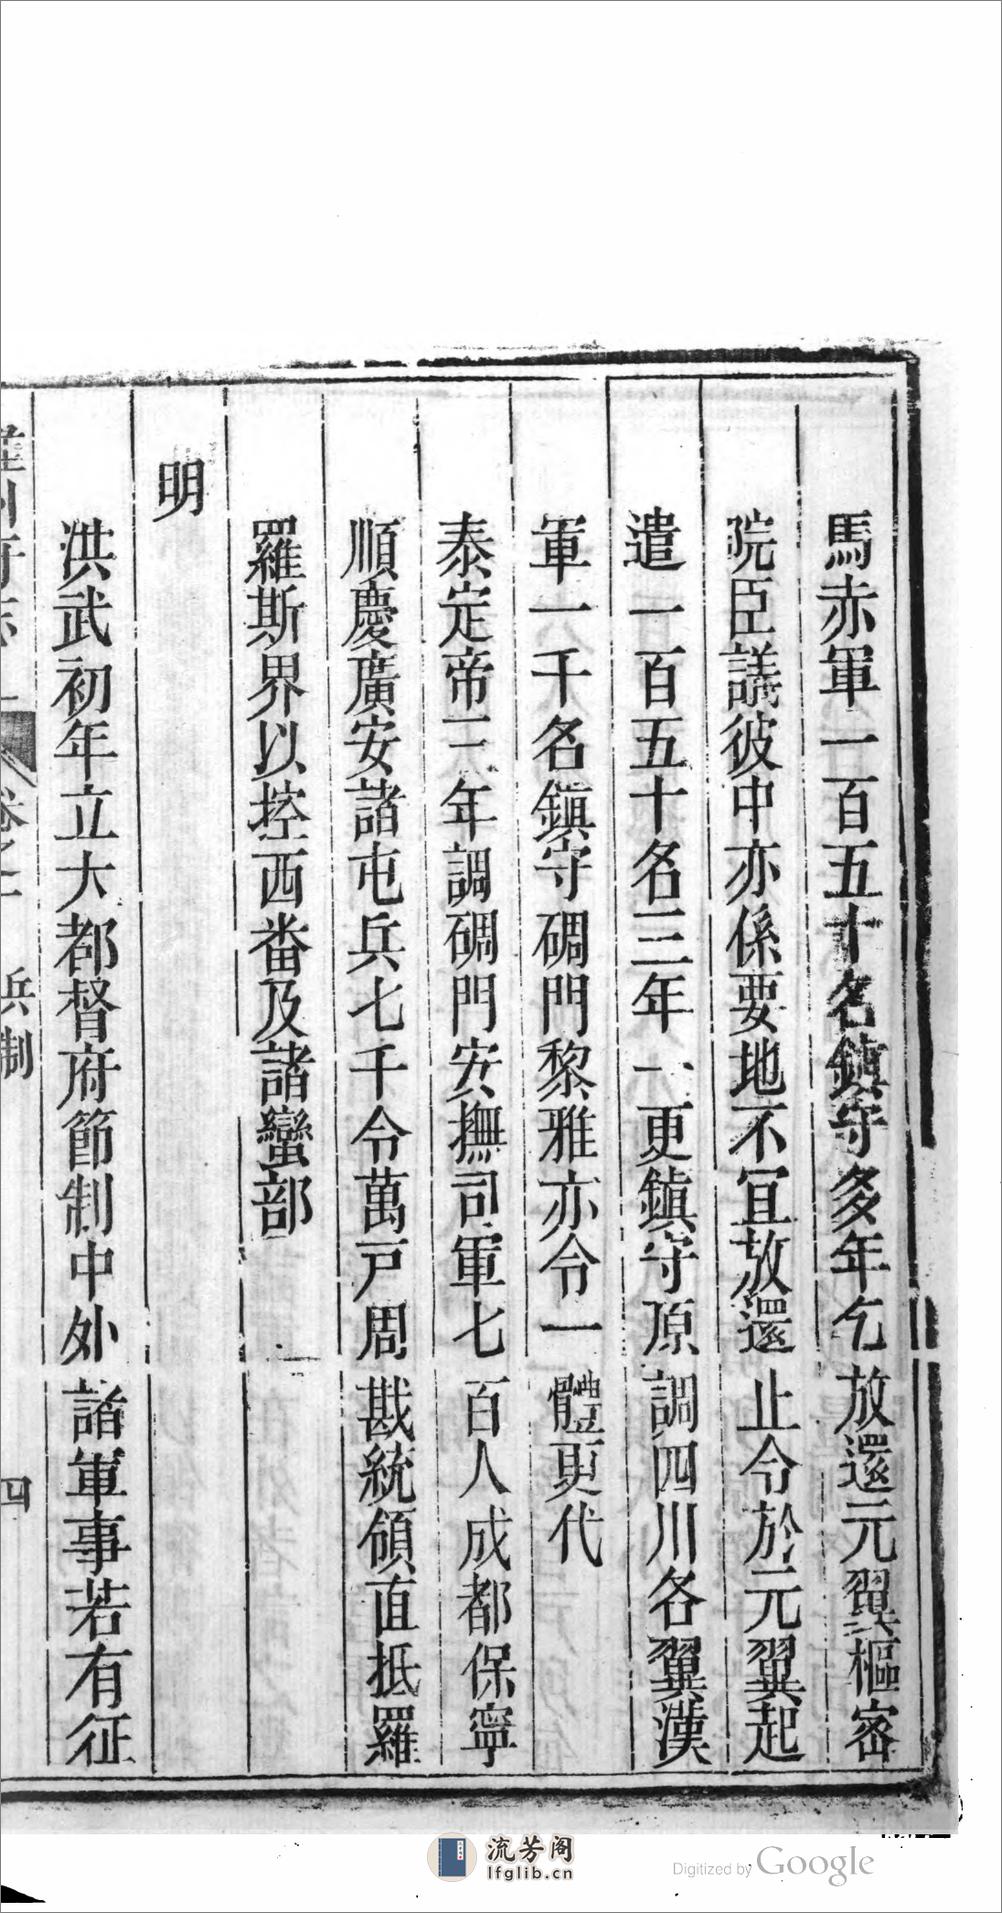 馬赤軍一百五十名鎮守多年乞放還元翼樞密
院臣議彼中亦係要地不冝放還止令於元翼起
遣一百五十名三年一更鎮守原調四川各翼漢
軍一千名鎮守碉門黎雅亦令一體更代
泰定帝三年調碉門安撫司軍七百人成都保寧
順慶廣安諸屯兵七千令萬戸周戡統領直抵羅
羅斯界以控西番及諸蠻部
明
洪武初年立大都督府節制中外諸軍事若有征
雅州府志 卷之十 兵制 四
流芳阁
lfglib.cn
Digitized by Google